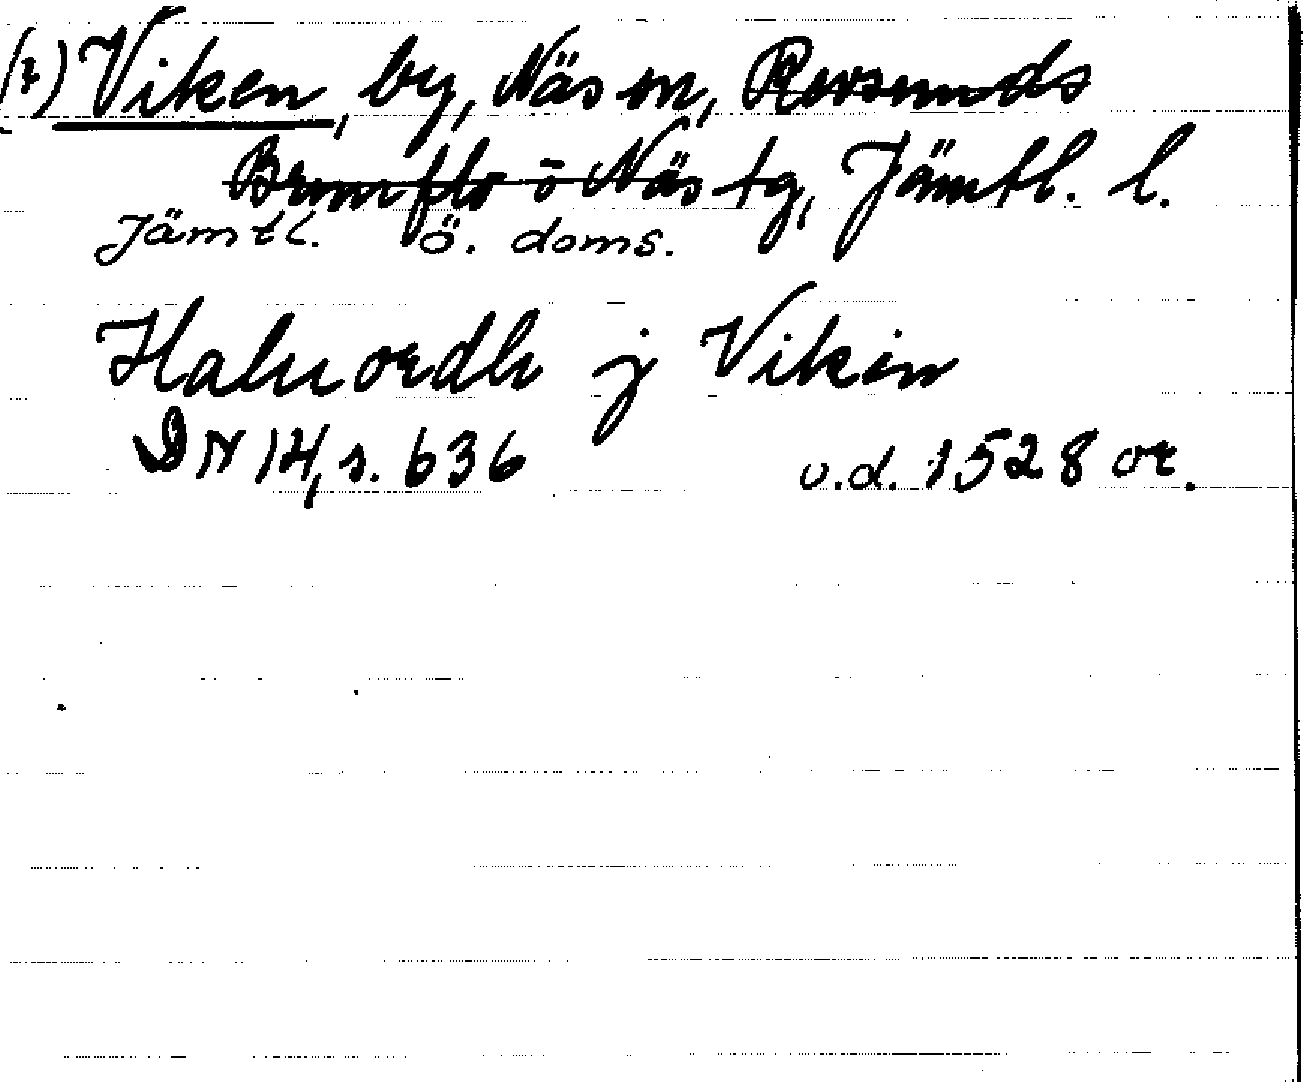 (?) Viken, by, Näs sn, Revsunds
Brunflo o Näs tg, Jämtl. l.
Jämtl. ö. doms.
Haluordh j Vikin
DN 14, s. 636 u.d. 1528 or.